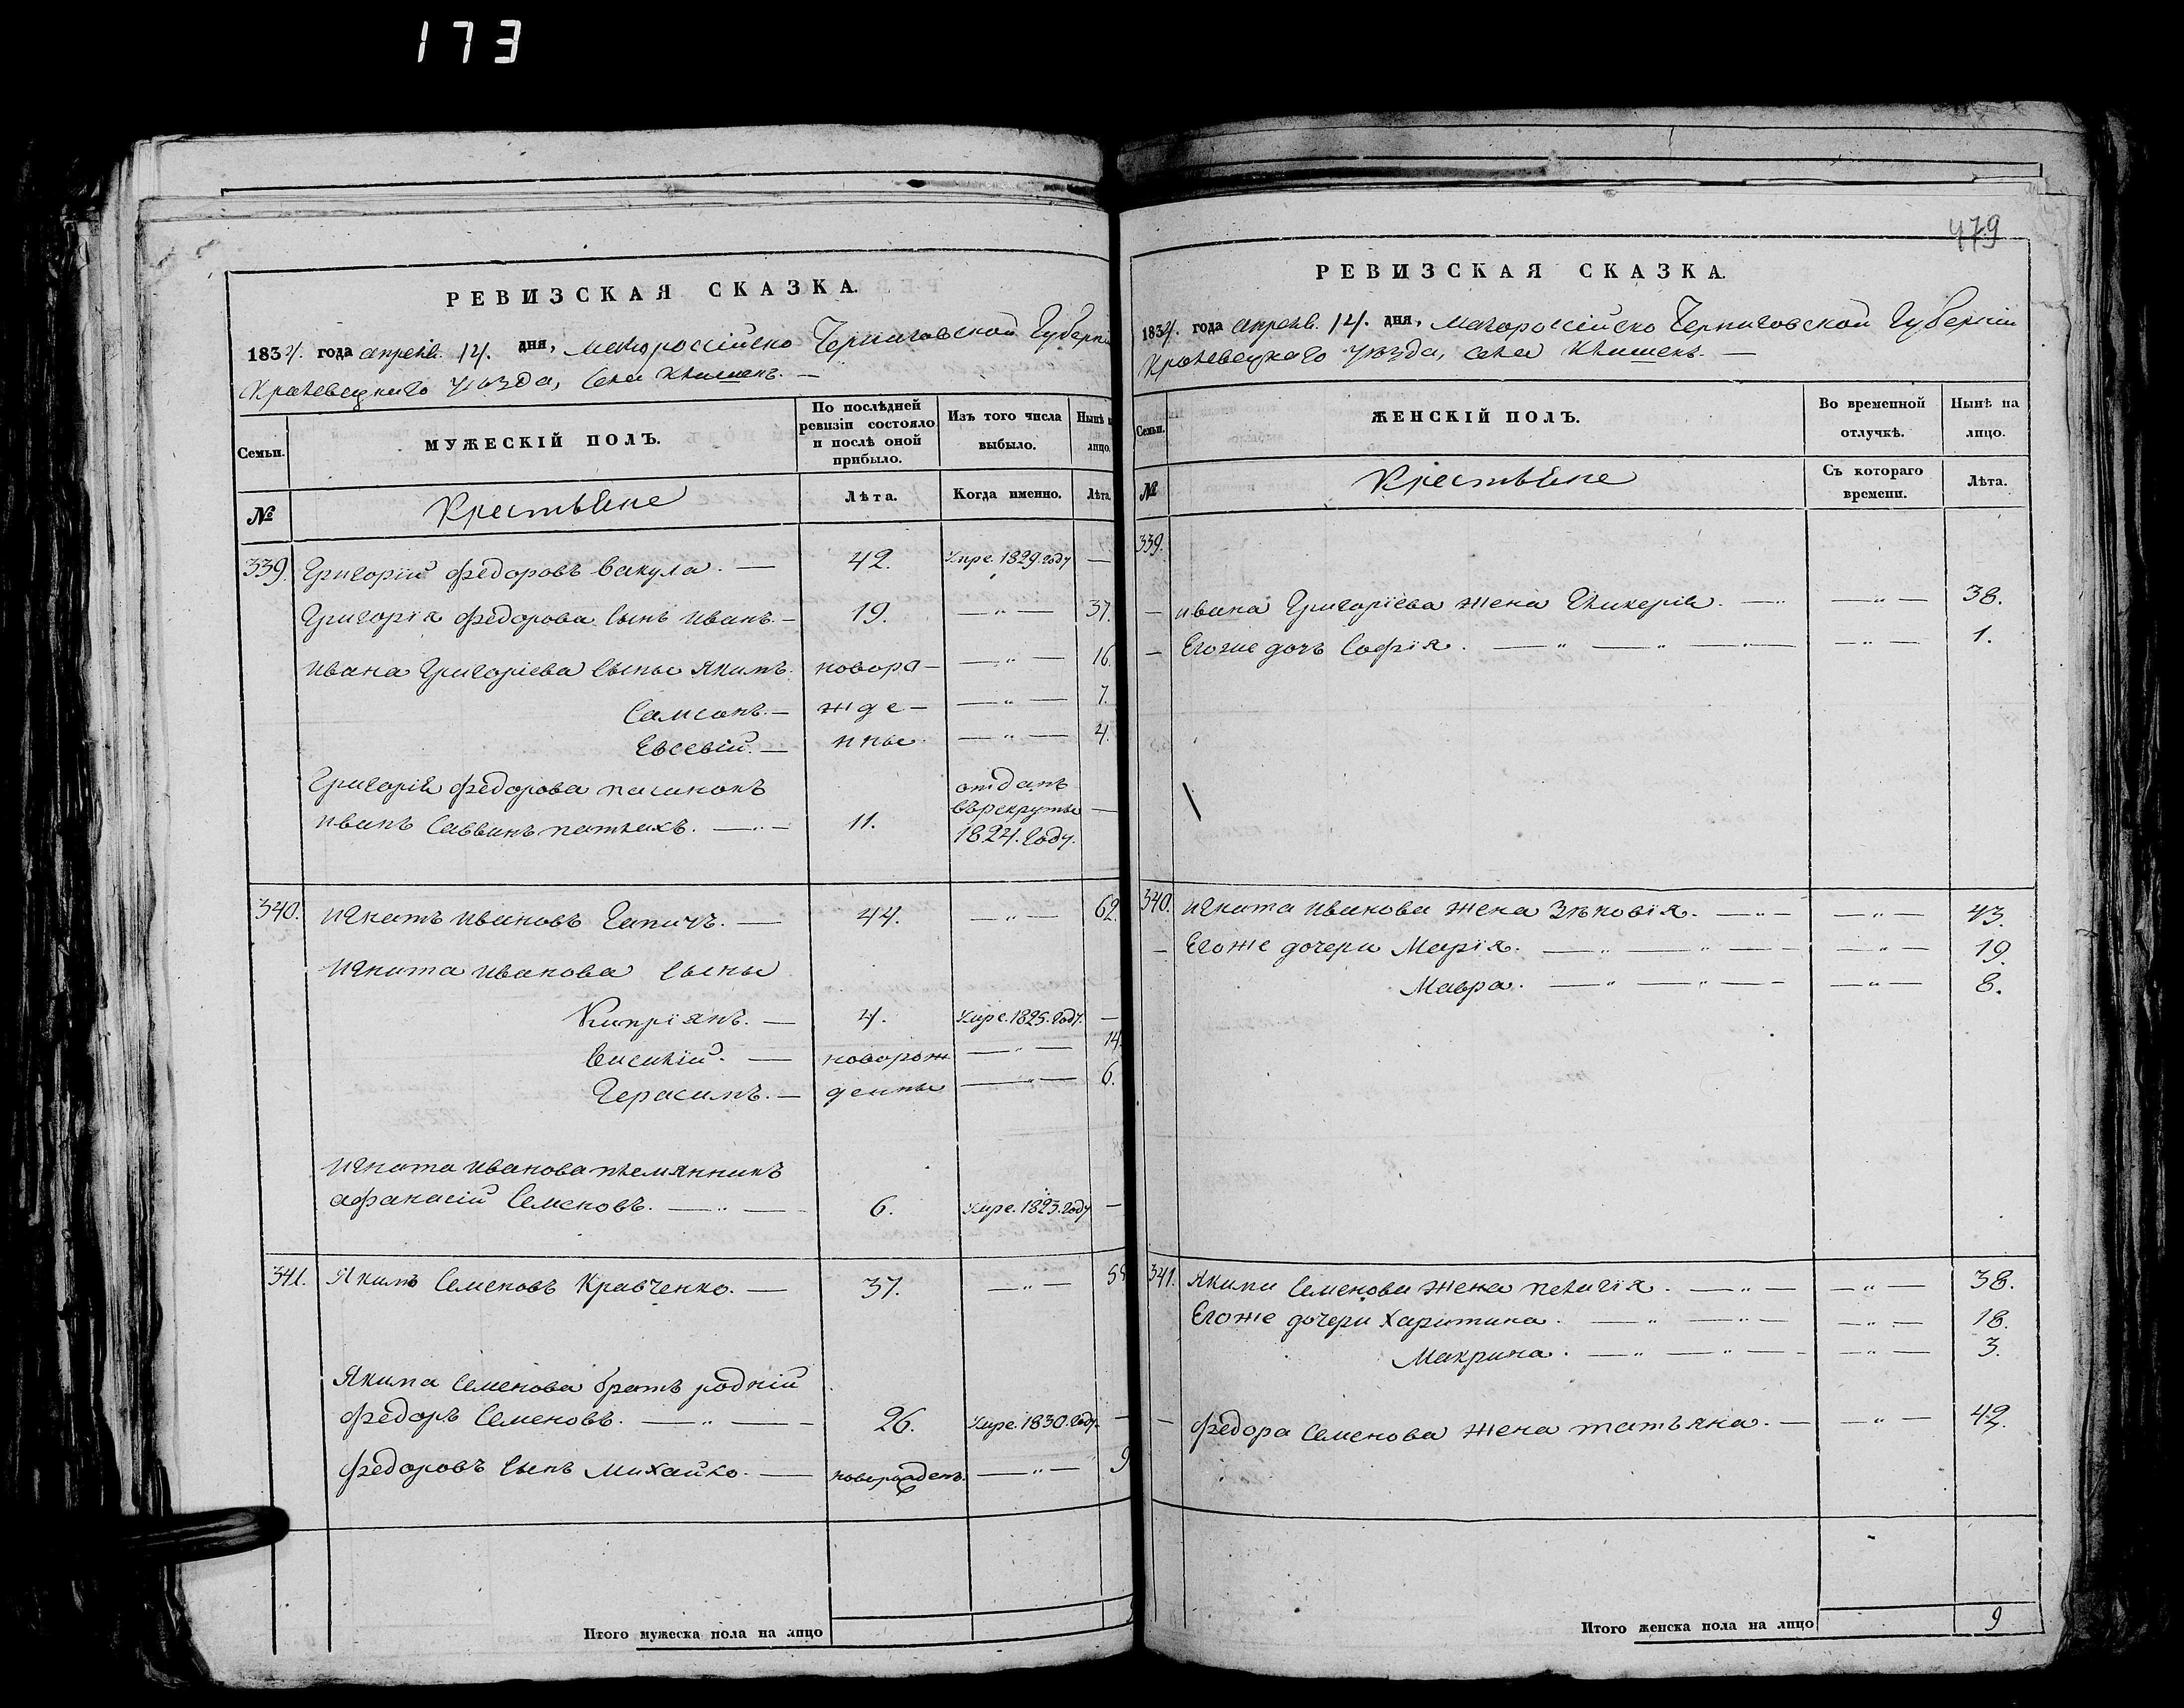 173
РЕВИЗСКАЯ СКАЗКА.
1834. года апреля. 14. дня, малороссійско Черниговской Губерніи
Кролевецкаго уѣзда, села Клишекъ. —
Семьи.
МУЖЕСКІЙ ПОЛЪ.
По послѣдней ревизіи состояло и послѣ оной прибыло.
Изъ того числа выбыло.
Нынѣ на лицо.
№
Крестьяне
Лѣта.
Когда именно.
Лѣта.
339. Григорій Федоровъ Вакула. — 42. Умре. 1829. году —
Григорія Федорова сынъ Иванъ. — 19. — " — 37.
Ивана Григоріева сыны Якимъ. новора — — " — 16.
Самсонъ. — жде — — " — 7.
Евсевій. — нные — " — 4.
Григорія Федорова пасинокъ отданъ
Иванъ Саввинъ — " — 11. въ рекруты —
1824. году.
340. Игнатъ Ивановъ Гапичъ. — 44. — " — 62.
Игната Иванова сыны
Кипріянъ. — 4. Умре. 1825. году. —
— новорож — " — 14.
Герасимъ. — денны — " — 6.
Игната Иванова племянникъ
Афанасій Семеновъ. — " — 6. Умре. 1823. году —
341. Якимъ Семеновъ Кравченко. — 37. — " —
Якима Семенова братъ родній
Федоръ Семеновъ. — " — 26. Умре. 1830. году. —
Федоровъ сынъ Михайко. — новорожденъ. — " — 9
Итого мужеска пола на лицо
479
РЕВИЗСКАЯ СКАЗКА.
1834. года апреля. 14. дня, малороссійско Черниговской Губерніи
Кролевецкаго уѣзда, села Клишекъ. —
Семьи.
ЖЕНСКІЙ ПОЛЪ.
Во временной отлучкѣ.
Нынѣ на лицо.
№
Крестьяне
Съ котораго времени.
Лѣта.
339.
— Ивана Григоріева жена Гликерія. — " — " — 38.
— Егоже дочь Софія. — " — " — " — 1.
340. Игната Иванова жена Зѣновія. — " — " — 43.
— Егоже дочери Марія. — " — " — " — 19.
Мавра. — " — " — " — 8.
341. Якима Семенова жена Пелагія. — " — " — 38.
Егоже дочери Харитина. — " — " — " — 18.
Макрина. — " — " — " — 3.
— Федора Семенова жена Татьяна. — " — 42.
Итого женска пола на лицо 9